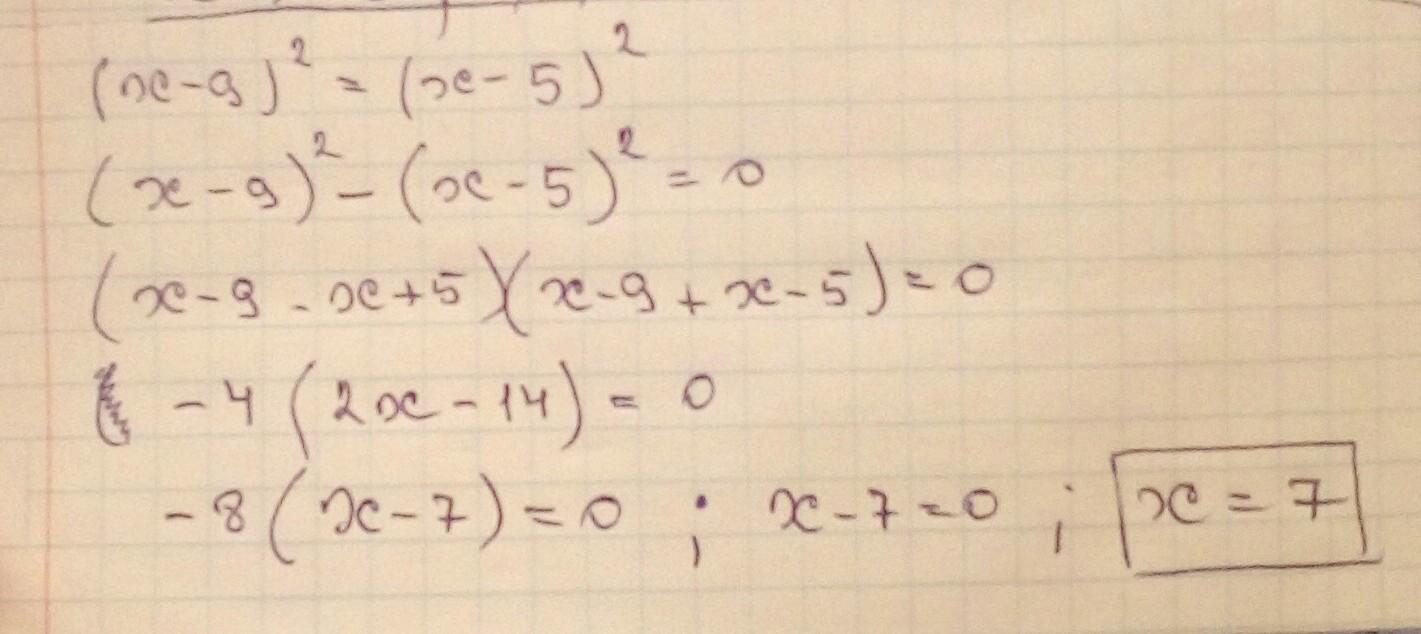 (x-9)² = (x-5)²
(x-9)² - (x-5)² = 0
(x-9-x+5)(x-9+x-5) = 0
-4(2x-14) = 0
-8(x-7) = 0 ; x-7=0 ; x = 7